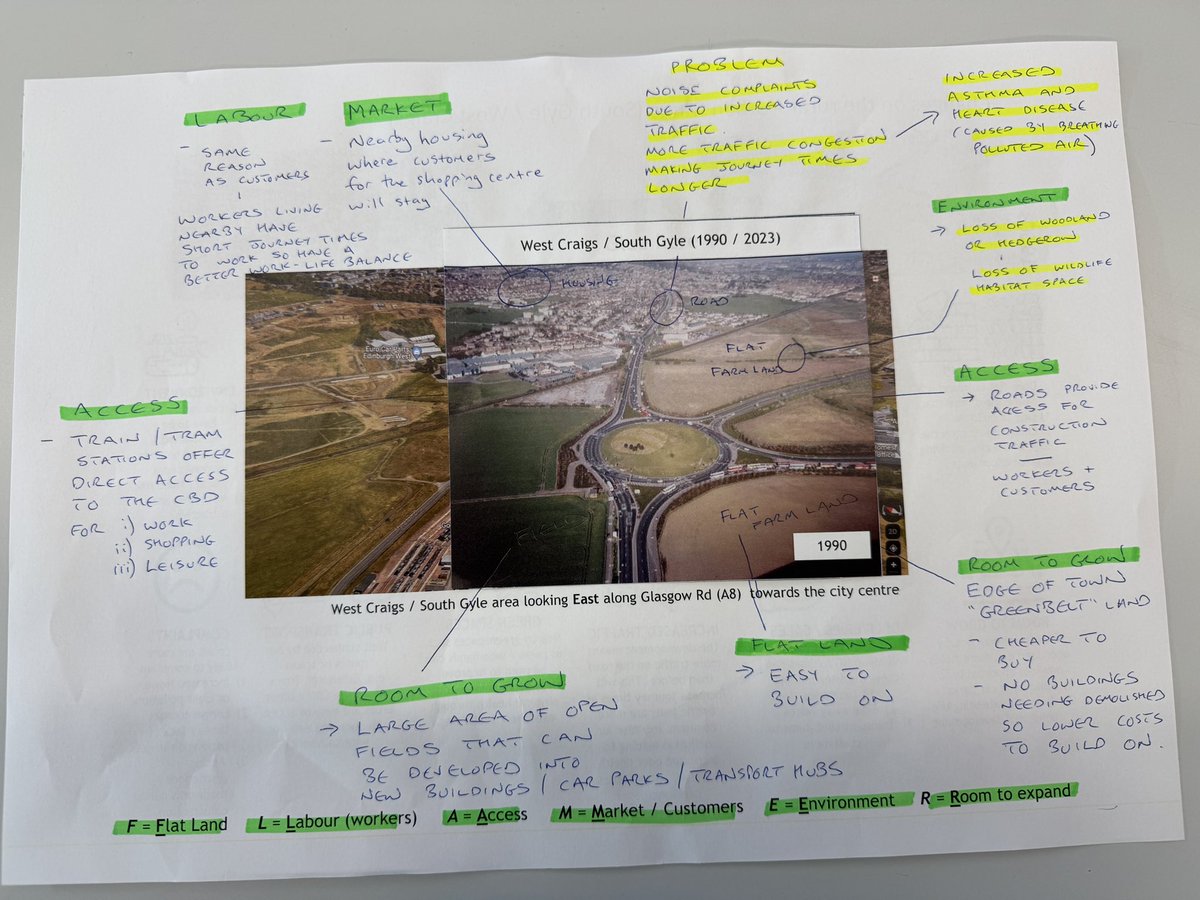 PROBLEM
NOISE COMPLAINTS
DUE TO INCREASED
TRAFFIC.
MORE TRAFFIC CONGESTION
MAKING JOURNEY TIMES
LONGER
INCREASED
ASTHMA AND
HEART DISEASE
(CAUSED BY BREATHING
POLLUTED AIR)
LABOUR
- SAME
REASON
AS CUSTOMERS
WORKERS LIVING
NEARBY HAVE
SHORT JOURNEY TIMES
TO WORK SO HAVE A
BETTER WORK-LIFE BALANCE
MARKET
- Nearby housing
where customers
for the shopping centre
will stay
ENVIRONMENT
→ LOSS OF WOODLAND
OR HEDGEROW
LOSS OF WILDLIFE
HABITAT SPACE
West Craigs / South Gyle (1990 / 2023)
HOUSING
ROAD
FLAT
FARM LAND
Euro Car Parts
Edinburgh West
ACCESS
- TRAIN / TRAM
STATIONS OFFER
DIRECT ACCESS
TO THE CBD
FOR i) WORK
ii) SHOPPING
iii) LEISURE
ACCESS
→ ROADS PROVIDE
ACCESS FOR
CONSTRUCTION
TRAFFIC
WORKERS +
CUSTOMERS
FIELD
FLAT
FARM LAND
1990
20
West Craigs / South Gyle area looking East along Glasgow Rd (A8) towards the city centre
ROOM TO GROW
→ LARGE AREA OF OPEN
FIELDS THAT CAN
BE DEVELOPED INTO
NEW BUILDINGS / CAR PARKS / TRANSPORT HUBS
FLAT LAND
→ EASY TO
BUILD ON
ROOM TO GROW
EDGE OF TOWN
"GREENBELT" LAND
- CHEAPER TO
BUY
- NO BUILDINGS
NEEDING DEMOLISHED
SO LOWER COSTS
TO BUILD ON.
F = Flat Land L = Labour (workers) A = Access M = Market / Customers E = Environment R = Room to expand